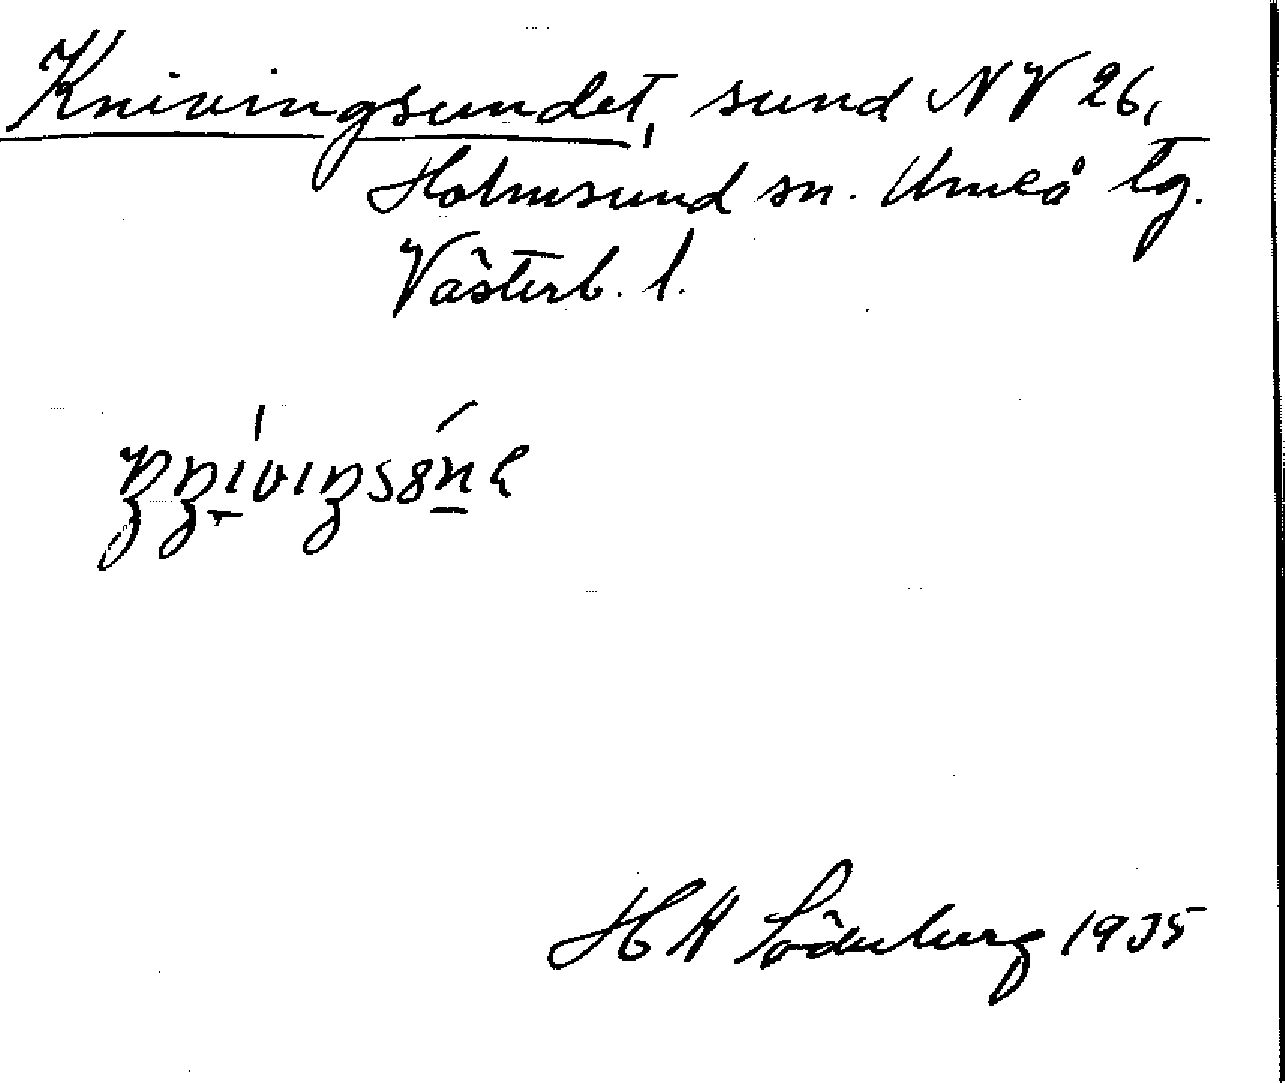 Knivingsundet, sund NV 26,
Holmsund sn. Umeå tg.
Västerb. l.
H A Söderberg 1935